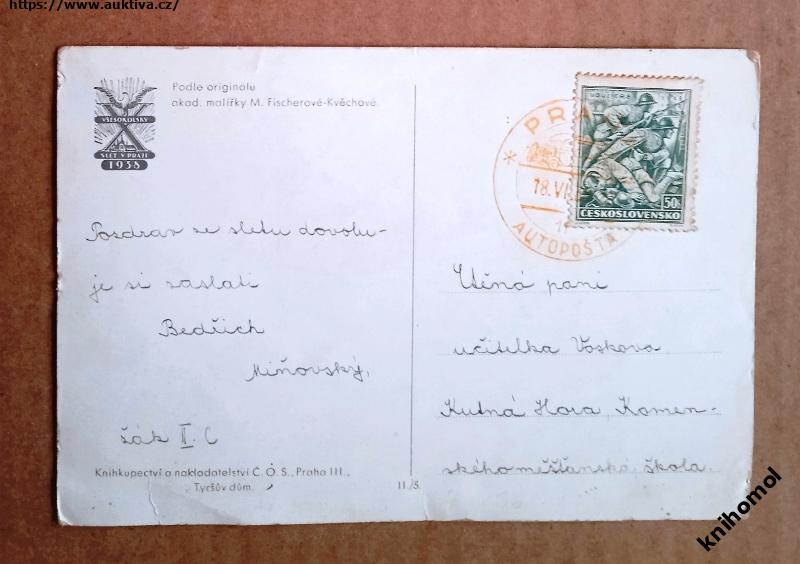 https://www.auktiva.cz/
Podle originálu
akad. malířky M. Fischerové-Kvěchové.
VŠESOKOLSKÝ
X
SLET V PRAZE
1938
PRA
18.VI
AUTOPOŠTA
VOUZIERS
50h
ČESKOSLOVENSKO
Pozdrav ze sletu dovolu-
je si zaslati
Bedřich
Miňovský,
žák II. C
Ctěná paní
učitelka Voskova
Kutná Hora, Komen-
ského měšťanská škola.
Knihkupectví a nakladatelství Č. O. S., Praha III.,
Tyršův dům.
II/5.
knihomol